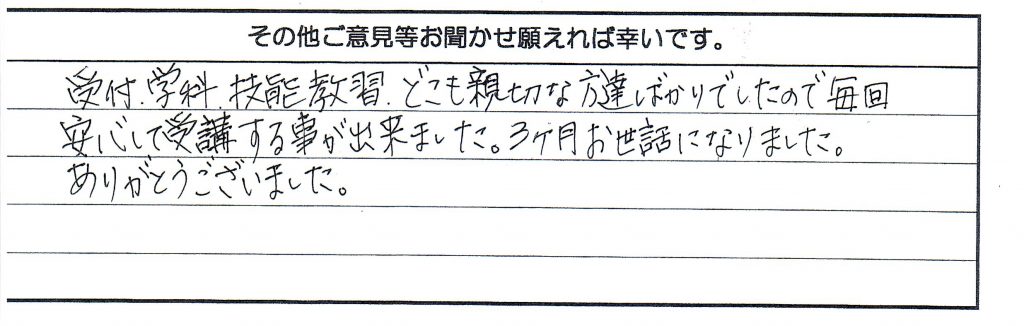 その他ご意見等お聞かせ願えれば幸いです。
受付.学科.技能教習.どこも親切な方達ばかりでしたので毎回
安心して受講する事が出来ました。3ヶ月お世話になりました。
ありがとうございました。